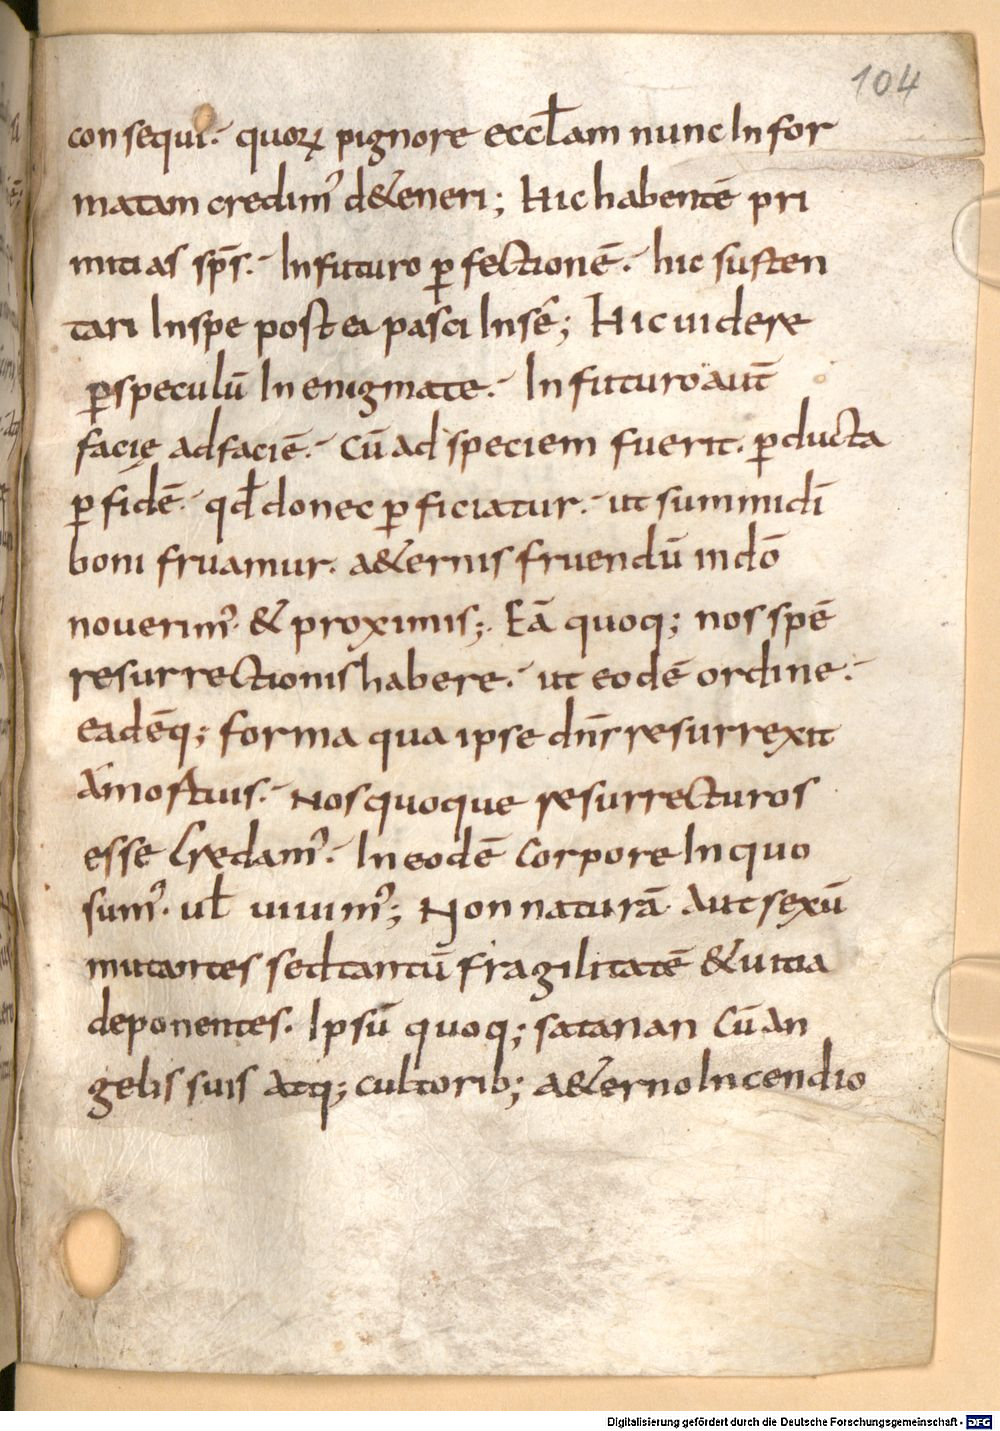 104
consequi. quoꝝ pignore eccl̄am nunc Infor
matam credim᾽ d&eneri; Hic habentē pri
mitias sp̄s. Infuturo ꝑfectionē. hic susten
tari Inspe postea pasci Insē; Hic uidere
ꝑ speculū In enigmate. In futuro aut̄
facię ad faciē. Cū ad speciem fuerit. ꝑducta
ꝑ fidē. qđ donec ꝑficiatur. ut summi dī
boni fruamur. a&ernis fruendū in dō
nouerim᾽ & proximis;. Eā quoq; nos spē
resurrectionis habere. ut eodē ordine.
eadēq; forma qua ipse dn̄s resurrexit
A mortuis. Nos quoque resurrecturos
esse Credam᾽. In eodē Corpore In quo
sum᾽. ul̄ uiuim᾽; Non naturā. Aut sexū
mutantes sed tantū fragilitatē & uitia
deponentes. Ipsū quoq; satanan Cū An
gelis suis Atq; cultorib; a&erno Incendio
Digitalisierung gefördert durch die Deutsche Forschungsgemeinschaft - DFG